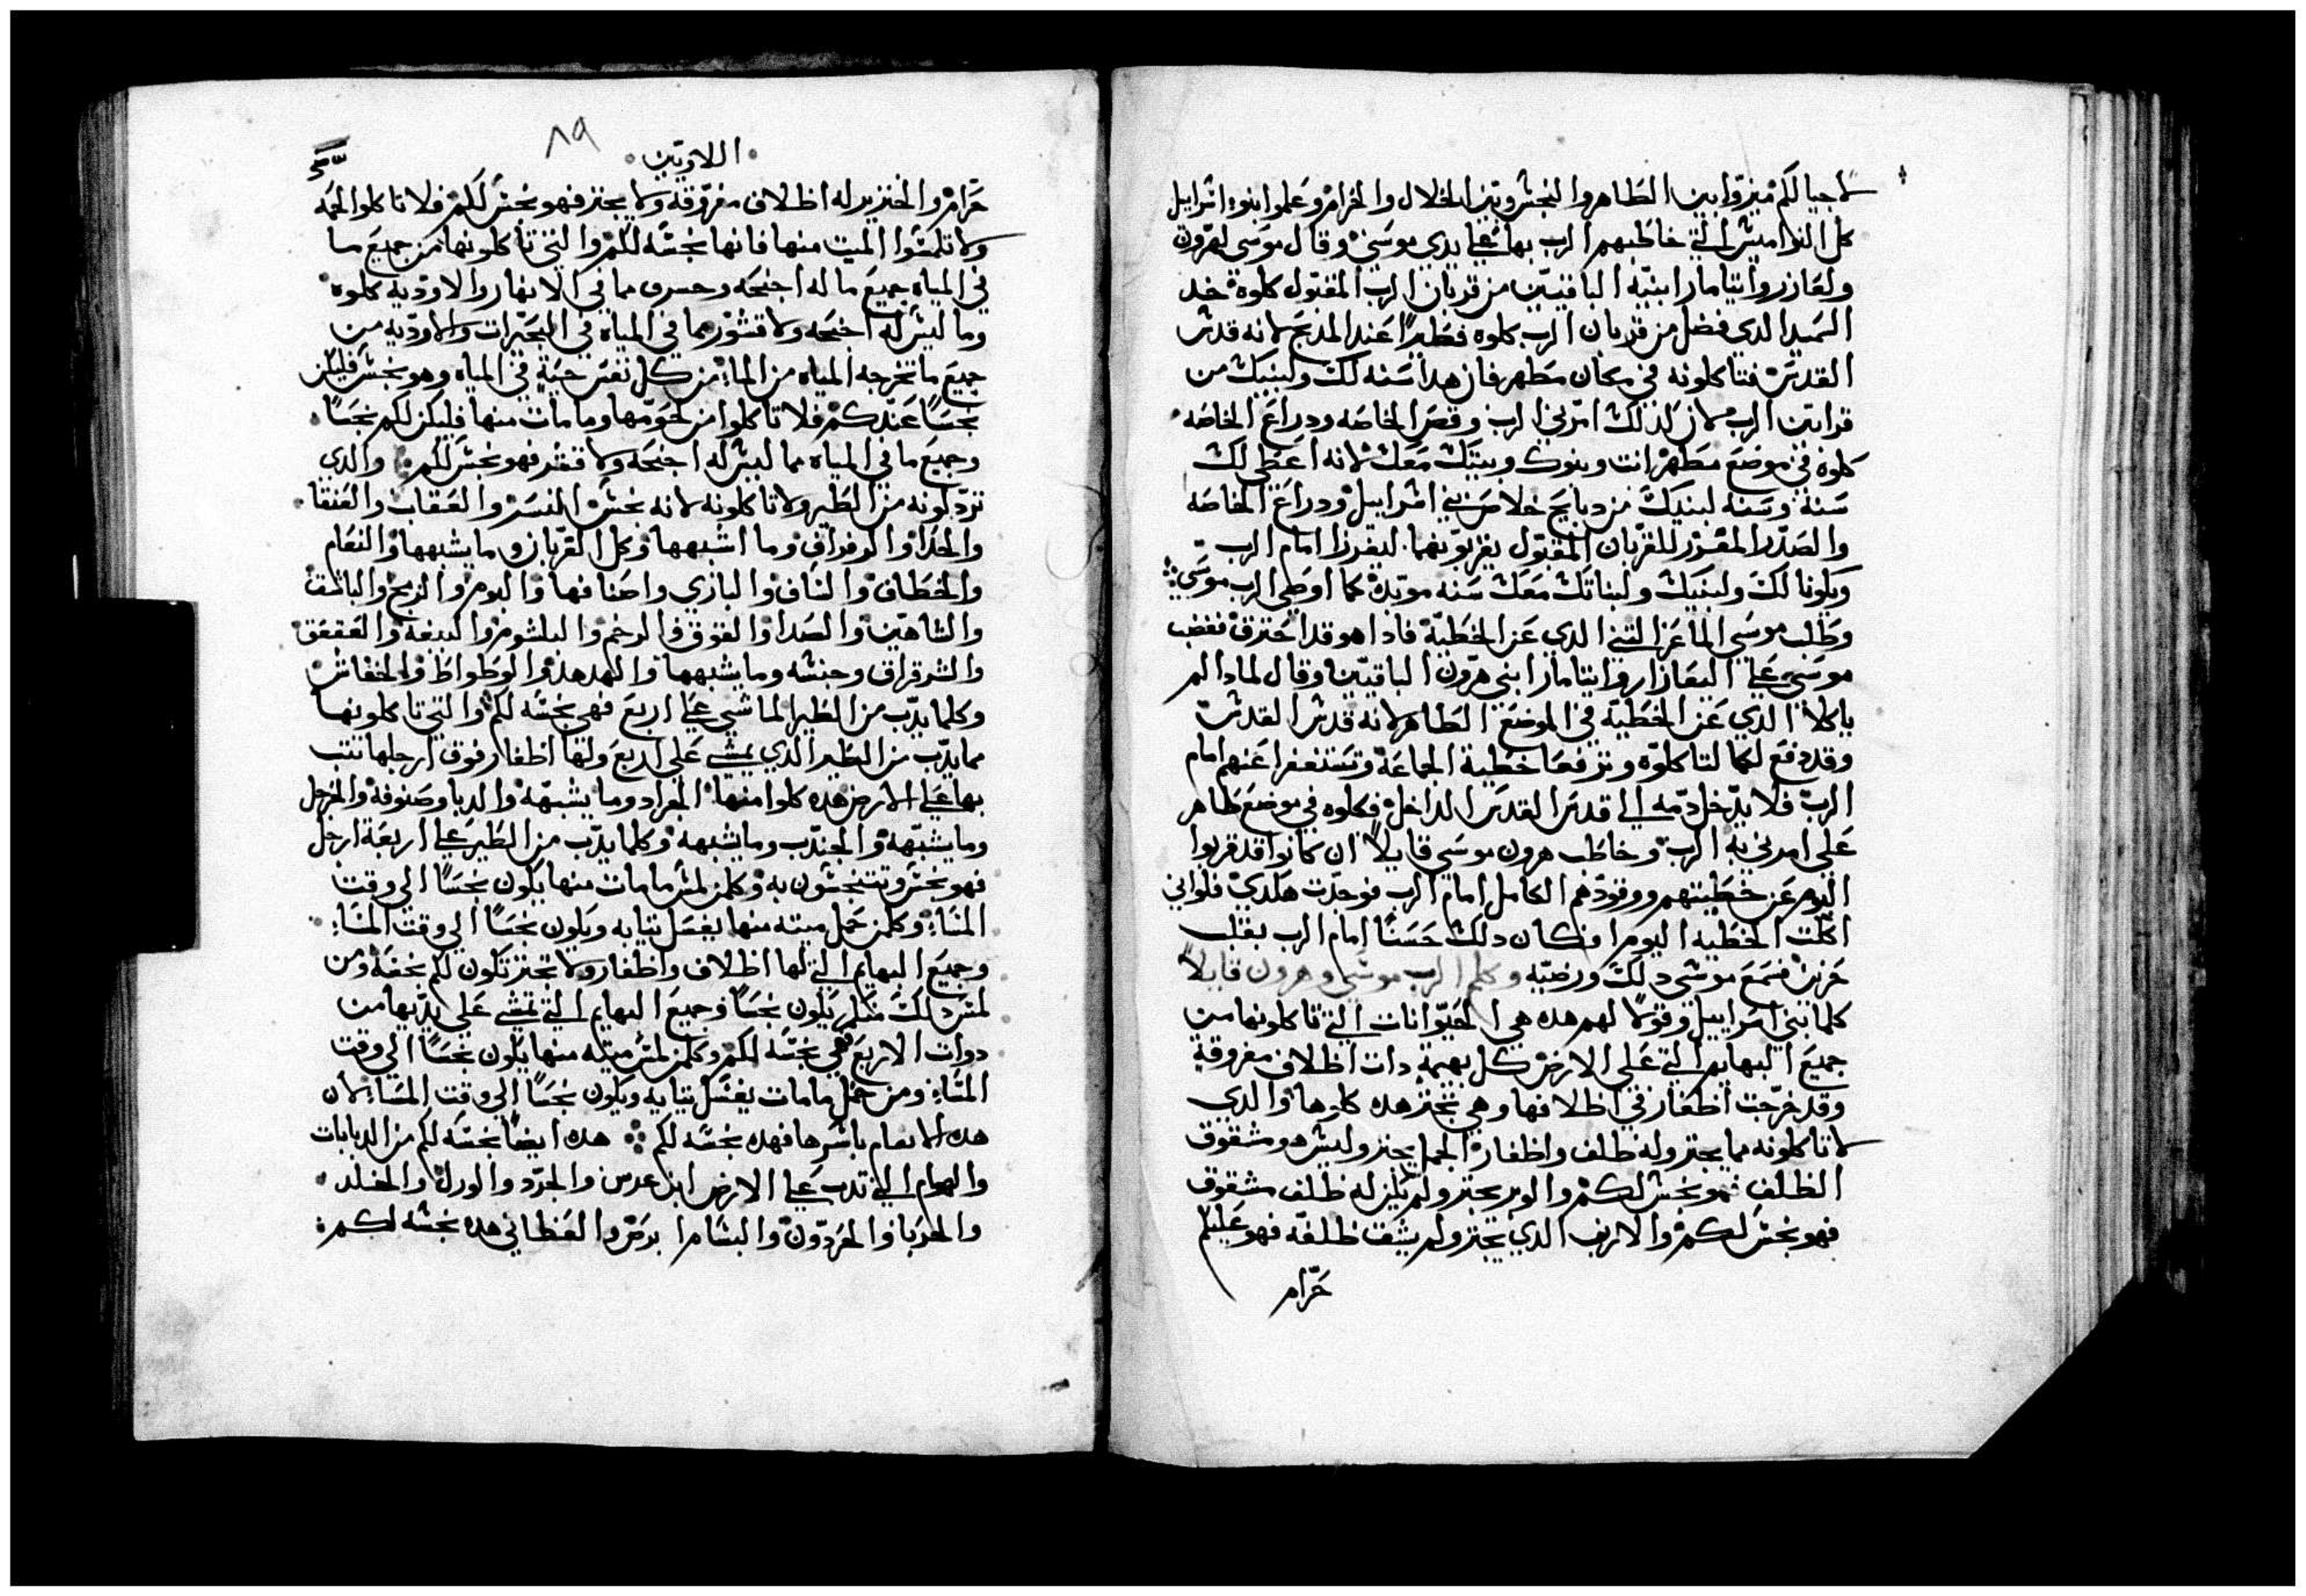 لاجيالكم ميزوا بين الطاهر والنجس وبين الحلال والحرام وعلموا بنو اسراييل
كل النواميس التي خاطبهم الرب بها علي يدي موسي وقال موسي لهرون
ولعازر وايتامار ابنيه الباقيين من قربان الرب المقبول كلوه خد
السميد الدي فضل من قربان الرب كلوه فطيرا عند المدبح لانه قدس
القدس فتاكلونه في مكان مطهر فان هدا سنه لك ولبنيك من
قرابين الرب لان كدلك امرني الرب وقص الخاصه ودراع الخاصه
كلوه في موضع مطهر انت وبنوك وبيتك معك لانه اعطي لك
سنة وسنة لبنيك من دبايح خلاص بني اسراييل ودراع الخاصه
والصدر المفرز للقربان المقبول يقربونهما ليفرزا امام الرب
ويكونا لك ولبنيك ولبناتك معك سنه موبدة كما اوصي الرب موسي
وطلب موسي الماعز التني الدي عن الخطية فادا هو قد احترق فغضب
موسي علي اليعازار وايتامار ابني هرون الباقيين وقال لمادا لم
ياكلا الدي عن الخطية في الموضع الطاهر لانه قدس القدس
وقد دفع لكما لتاكلوه وترفعا خطية الجماعة وتستغفرا عنهم امام
الرب فلا يدخل دمه الي قدس القدس الداخل فكلوه في موضع طاهر
علي امرني به الرب وخاطب هرون موسي قايلا ان كانوا قد قربوا
اليوم عن خطيتهم ووقودهم الكامل امام الرب فوجدت هكدي فلواني
اكلت الخطيه اليوم افكان دلك حسنا امام الرب بقلب
حزين فسمع موسي دلك ورضيه وكلم الرب موسي وهرون قايلا
كلما بني اسراييل وقولا لهم هده هي الحيوانات التي تاكلونها من
جميع البهايم التي علي الارض كل بهيمة دات اظلاف مفروقة
وقد خرجت اظفار في اظلافها وهي تجتر هده كلوها والدي
لا تاكلونه مما يجتر وله ظلف واظفار الجمل يجتر وليس هو مشقوق
الظلف فهو نجس لكم والوبر يجتر ولم يكن له ظلف مشقوق
فهو نجس لكم والارنب الدي يجتر ولم يشق ظلفه فهو عليكم
حرام
اللاويين
٨٩
حرام والخنزير له اظلاف مفروقة ولا يجتر فهو نجس لكم فلا تاكلوا لحمه
ولا تلمسوا الميت منها فانها نجسه لكم والتي تاكلونها من جميع ما
في المياه جميع ما له اجنحه وحسرف مما في الانهار والاوديه كلوه
وما ليس له اجنحه ولا قشور مما في المياه في البحيرات والاوديه من
جميع ما تخرجه المياه من الما من كل نفس حية في المياه وهو نجس فليكن
نجسا عندكم فلا تاكلوا من لحومها وما مات منها فليكن لكم نجسا
وجميع ما في المياه مما ليس له اجنحه ولا قشر فهو نجس لكم والدي
تردلونه من الطير ولا تاكلونه لانه نجس النسر والعقاب والعنقا
والحدا وا وما اشبهها وكل الغربان وما يشبهها والنعام
والخطاف والناف والبازي واصنافها والبوم والزمج والباشق
والشاهين والصدا والقوق والرخم والبلشوم والببغة والعقعق
والشرقراق وجنسه وما يشبهها والهدهد والوطواط والخفاش
وكلما يدب من الطير الماشي علي اربع فهي نجسه لكم والتي تاكلونها
مما يدب من الطير الدي يمشي علي اربع ولها اظفار فوق ارجلها تثب
بها علي الارض هده كلوا منها الجراد وما يشبهه والدبا وصنوفه والحرجل
وما يشبهه والجندب وما يشبهه وكلما يدب من الطير علي اربعة ارجل
فهو نجس وتتنجسون به وكلمن لمس ما مات منها يكون نجسا الي وقت
المسا وكلمن حمل ميته منها يغسل تيابه ويكون نجسا الي وقت المسا
وجميع البهايم التي لها اظلاف واظفار ولا تجتر تكون لكم نجسة ومن
لمس دلك منكم يكون نجسا وجميع البهايم التي تمشي علي يديها من
دوات الاربع فهي نجسه لكم وكلمن لمس ميته منها يكون نجسا الي وقت
المسا ومن حمل ما مات يغسل تيابه ويكون نجسا الي وقت المسا لان
هده الانعام باسرها فهده نجسه لكم هده ايضا نجسه لكم من الدبابات
والهوام التي تدب علي الارض ابن عرس والجرد والورل والخلد
والحربا والحردون والسام ابرص والعظاني هده نجسه لكم